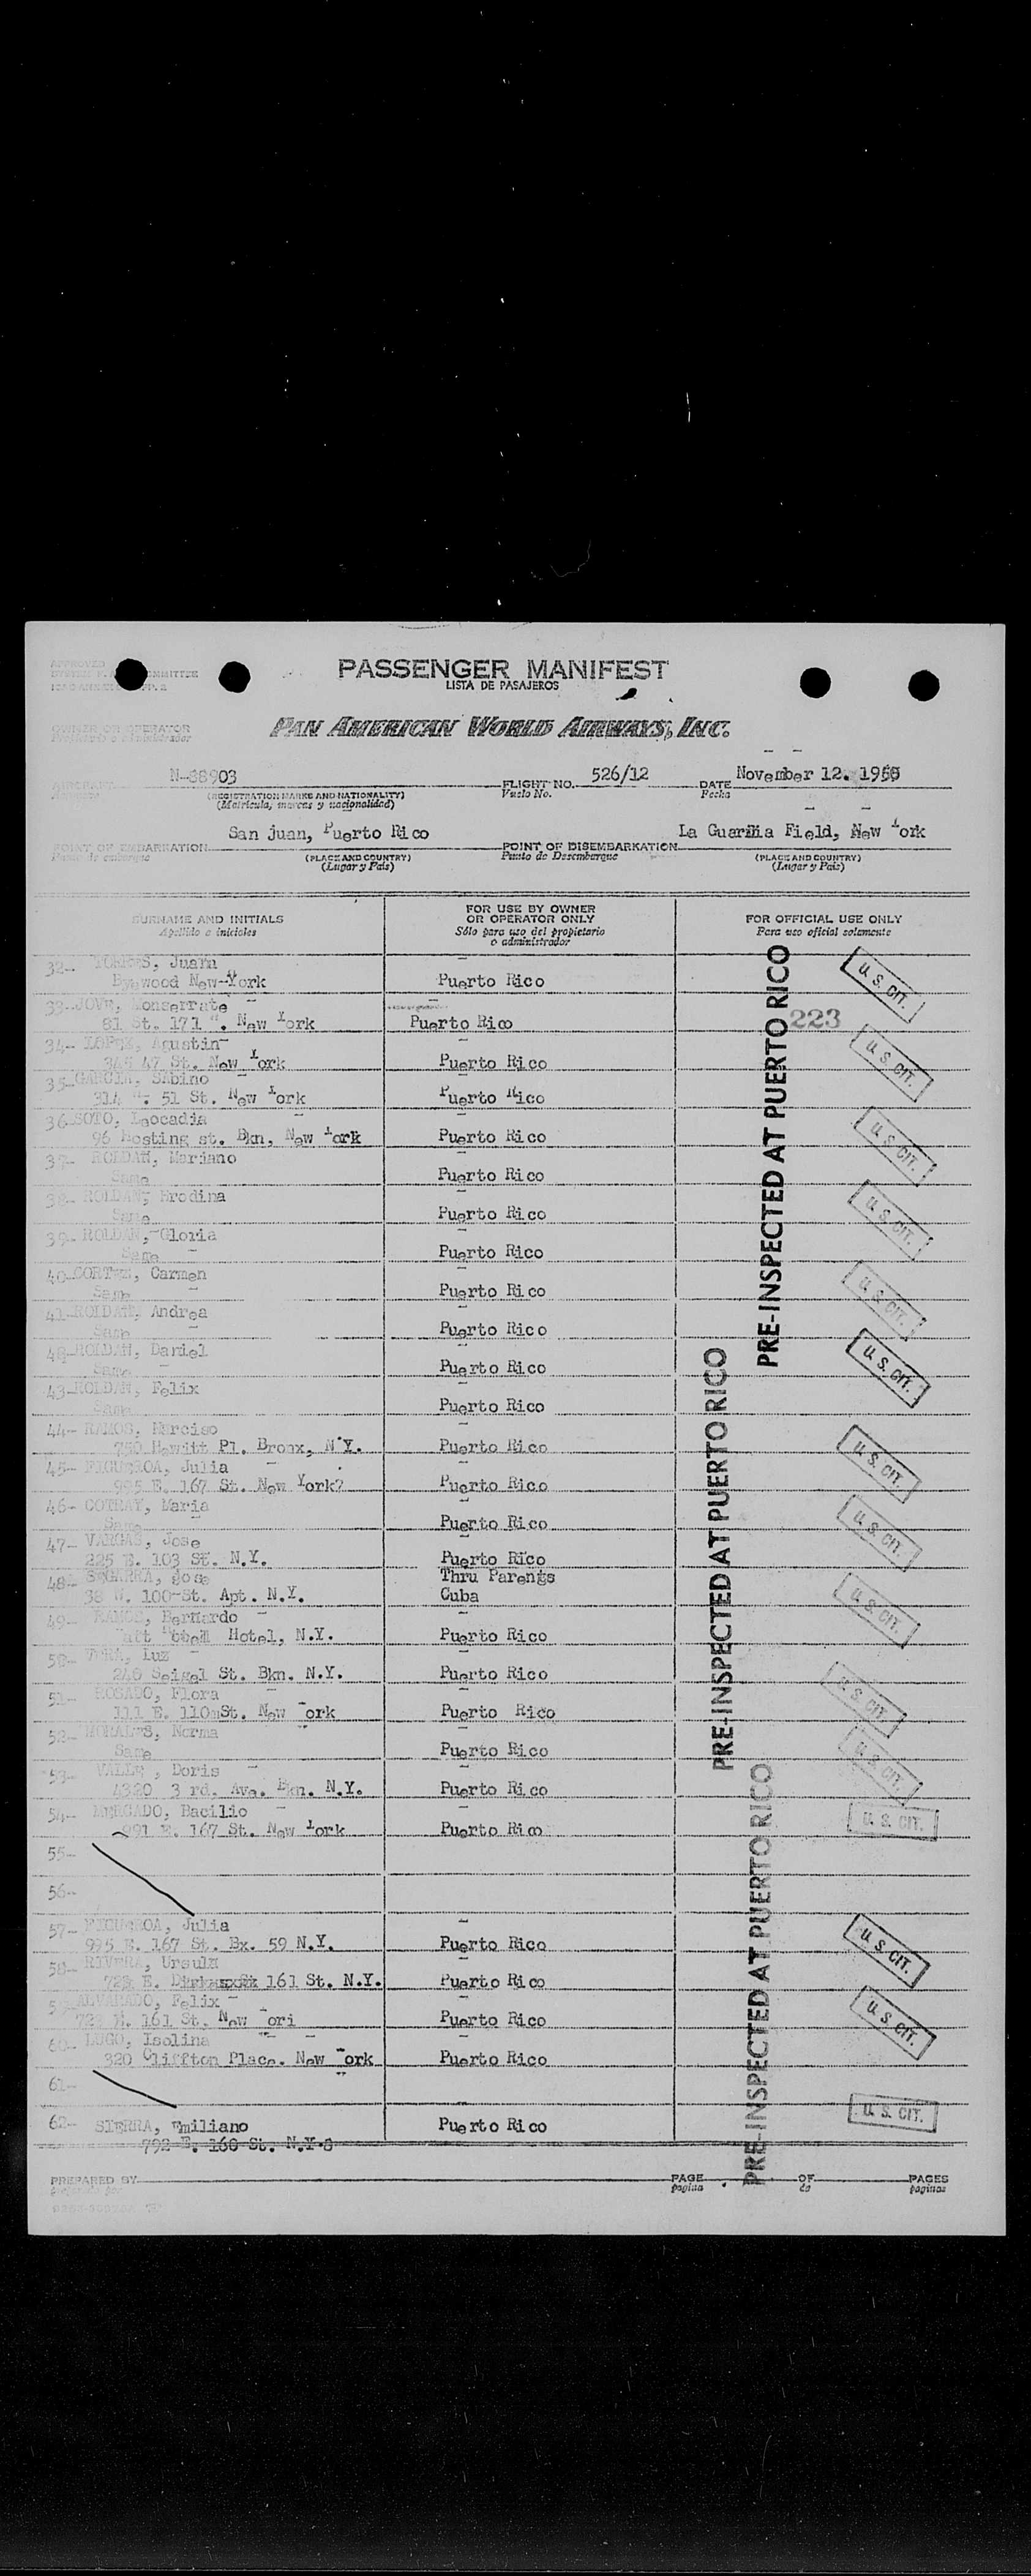 PASSENGER MANIFEST
LISTA DE PASAJEROS
PAN AMERICAN WORLD AIRWAYS, INC.
OWNER OR OPERATOR
AIRCRAFT N-88903 FLIGHT NO. 526/12 DATE November 12. 1950
(REGISTRATION MARKS AND NATIONALITY) Vuelo No. Fecha
(Matrícula, marcas y nacionalidad)
San juan, Puerto Rico La Guardia Field, New York
POINT OF EMBARKATION POINT OF DISEMBARKATION
Punto de embarque (PLACE AND COUNTRY) Punto de Desembarque (PLACE AND COUNTRY)
(Lugar y País) (Lugar y País)
SURNAME AND INITIALS FOR USE BY OWNER OR OPERATOR ONLY FOR OFFICIAL USE ONLY
Apellido e iniciales Sólo para uso del propietario o administrador Para uso oficial solamente
32- TORRES, Juana
New-York Puerto Rico U. S. CIT.
33- JOVE, Monserrate
81 St. 171 W. New York Puerto Rico 223
34- LOPEZ, Agustin U. S. CIT.
345 47 St. New York Puerto Rico
35- GARCIA, Sabino
314 W. 51 St. New York Puerto Rico
36- SOTO, Leocadia
96 Hosting st. Bkn, New York Puerto Rico U. S. CIT.
37- ROLDAN, Mariano
Same Puerto Rico
38- ROLDAN, Erodina
Same Puerto Rico U. S. CIT.
39- ROLDAN, Gloria
Same Puerto Rico
40- CORTES, Carmen
Same Puerto Rico U. S. CIT.
41- ROLDAN, Andrea
Same Puerto Rico
42- ROLDAN, Daniel
Same Puerto Rico U. S. CIT.
43- ROLDAN, Felix
Same Puerto Rico
44- RAMOS, Narciso
750 Hewitt Pl. Bronx, N.Y. Puerto Rico U. S. CIT.
45- FIGUEROA, Julia
995 E. 167 St. New York? Puerto Rico
46- COTRAY, Maria
Same Puerto Rico U. S. CIT.
47- VARGAS, Jose
225 E. 103 St. N.Y. Puerto Rico
48- SEGARRA, Jose Thru Parents
38 W. 100-St. Apt. N.Y. Cuba U. S. CIT.
49- RAMOS, Bernardo
Hotel, N.Y. Puerto Rico
50- VERA, Luz
240 Seigel St. Bkn. N.Y. Puerto Rico
51- ROSADO, Flora
111 E. 110 St. New York Puerto Rico U. S. CIT.
52- MORALES, Norma
Same Puerto Rico U. S. CIT.
53- VALLE, Doris
4320 3 rd. Ave. Bkn. N.Y. Puerto Rico
54- MERCADO, Bacilio
991 E. 167 St. New York Puerto Rico U. S. CIT.
55-
56-
57- FIGUEROA, Julia
995 E. 167 St. Bx. 59 N.Y. Puerto Rico U. S. CIT.
58- RIVERA, Ursula
E. 161 St. N.Y. Puerto Rico
ALVARADO, Felix
161 St. New Puerto Rico U. S. CIT.
LUGO, Isolina
320 Cliffton Place. New York Puerto Rico
61-
62- SIERRA, Emiliano Puerto Rico U. S. CIT.
792 E. 160 St. N.Y.
PRE-INSPECTED AT PUERTO RICO
PRE-INSPECTED AT PUERTO RICO
PRE-INSPECTED AT PUERTO RICO
PREPARED BY PAGE OF PAGES
página de páginas